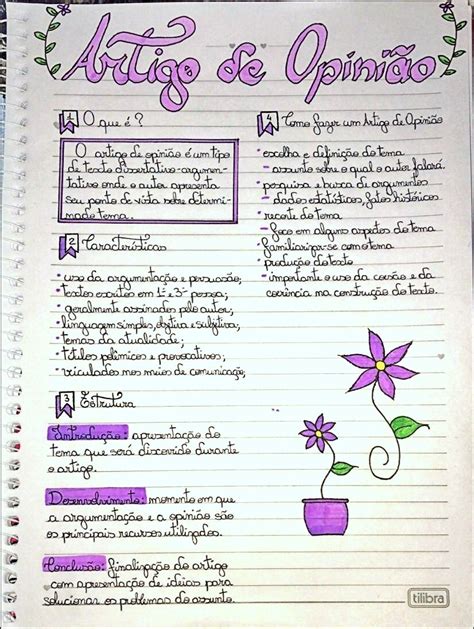 Artigo de Opinião
1 O que é?
O artigo de opinião é um tipo
de texto dissertativo-argumen-
tativo onde o autor apresenta
seu ponto de vista sobre determi-
nado tema.
2 Características
• uso da argumentação e persuasão;
• textos escritos em 1ª e 3ª pessoa;
• geralmente assinados pelo autor;
• linguagem simples, objetiva e subjetiva;
• temas da atualidade;
• títulos polêmicos e provocativos;
• veiculados nos meios de comunicação;
3 Estrutura
Introdução: apresentação do
tema que será discorrido durante
o artigo.
Desenvolvimento: momento em que
a argumentação e a opinião são
os principais recursos utilizados.
Conclusão: finalização do artigo
com apresentação de ideias para
solucionar os problemas do assunto.
4 Como fazer um Artigo de Opinião
• escolha e definição do tema
- assunto sobre o qual o autor falará.
• pesquisa e busca de argumentos
- dados estatísticos, fatos históricos
• recorte do tema
- foco em alguns aspectos do tema
• familiarizar-se com o tema
• produção do texto
- importante o uso da coesão e da
coerência na construção do texto.
tilibra